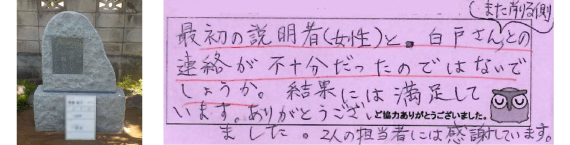 最初の説明者(女性)と、白戸さんとの
連絡が不十分だったのではないで
しょうか。結果には満足して
います。ありがとうござい
ご協力ありがとうございました。
ました。2人の担当者には感謝しています。